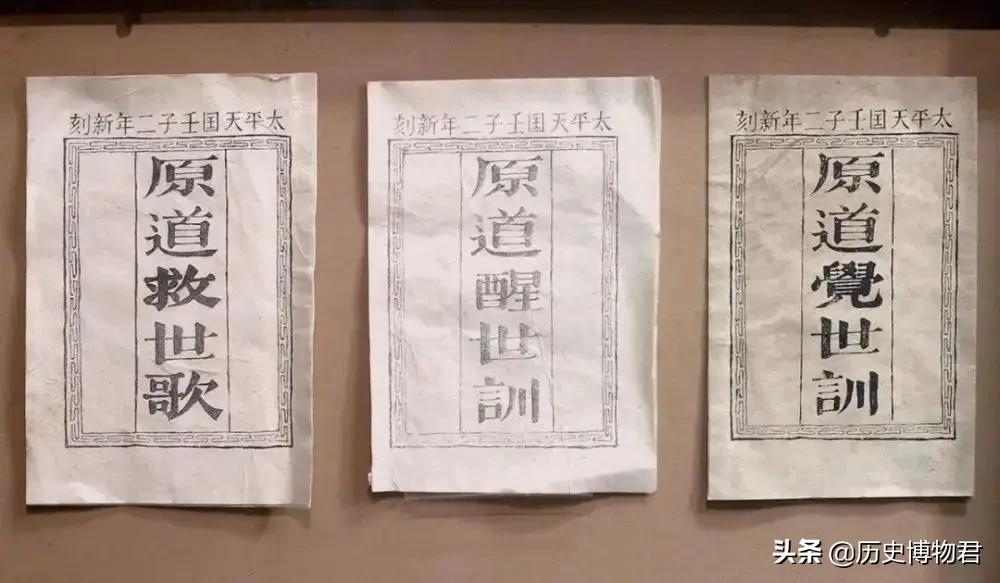 太平天囯壬子二年新刻
原道救世歌
太平天囯壬子二年新刻
原道醒世訓
太平天囯壬子二年新刻
原道覺世訓
头条 @历史博物君